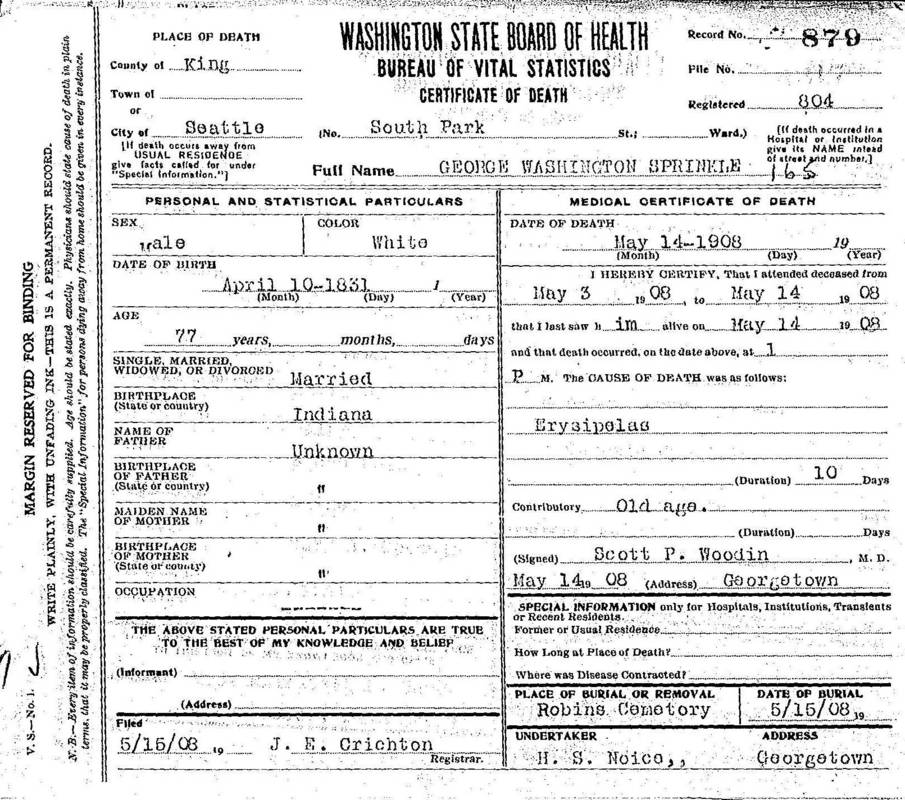 PLACE OF DEATH
County of King
Town of
or
City of Seattle
[If death occurs away from
USUAL RESIDENCE
give facts called for under
"Special Information."]
WASHINGTON STATE BOARD OF HEALTH
BUREAU OF VITAL STATISTICS
CERTIFICATE OF DEATH
(No. South Park St.; Ward.)
Full Name GEORGE WASHINGTON SPRINKLE
Record No. 879
File No.
Registered 804
[If death occurred in a
Hospital or Institution
give its NAME intead
of street and number.]
165
PERSONAL AND STATISTICAL PARTICULARS
SEX
Male
COLOR
White
DATE OF BIRTH
April 10-1831 1
(Month) (Day) (Year)
AGE
77 years, months, days
SINGLE, MARRIED,
WIDOWED, OR DIVORCED
Married
BIRTHPLACE
(State or country)
Indiana
NAME OF
FATHER
Unknown
BIRTHPLACE
OF FATHER
(State or country) "
MAIDEN NAME
OF MOTHER "
BIRTHPLACE
OF MOTHER
(State or country) "
OCCUPATION
----------
THE ABOVE STATED PERSONAL PARTICULARS ARE TRUE
TO THE BEST OF MY KNOWLEDGE AND BELIEF
(Informant)
(Address)
Filed
5/15/08 19 J. E. Crichton
Registrar.
MEDICAL CERTIFICATE OF DEATH
DATE OF DEATH
May 14-1908 19
(Month) (Day) (Year)
I HEREBY CERTIFY, That I attended deceased from
May 3 1908, to May 14 1908
that I last saw him alive on May 14 1908
and that death occurred, on the date above, at 1
P M. The CAUSE OF DEATH was as follows:
Erysipelas
(Duration) 10 Days
Contributory Old age.
(Duration) Days
(Signed) Scott P. Woodin, M. D.
May 14 19 08 (Address) Georgetown
SPECIAL INFORMATION only for Hospitals, Institutions, Transients
or Recent Residents.
Former or Usual Residence
How Long at Place of Death?
Where was Disease Contracted?
PLACE OF BURIAL OR REMOVAL
Robins Cemetory
DATE OF BURIAL
5/15/08 19
UNDERTAKER
H. S. Noice,,
ADDRESS
Georgetown
V. S.—No. 1.
MARGIN RESERVED FOR BINDING
WRITE PLAINLY, WITH UNFADING INK—THIS IS A PERMANENT RECORD.
N. B.—Every item of information should be carefully supplied. Age should be stated exactly. Physicians should state cause of death in plain
terms, that it may be properly classified. The "Special Information" for persons dying away from home should be given in every instance.